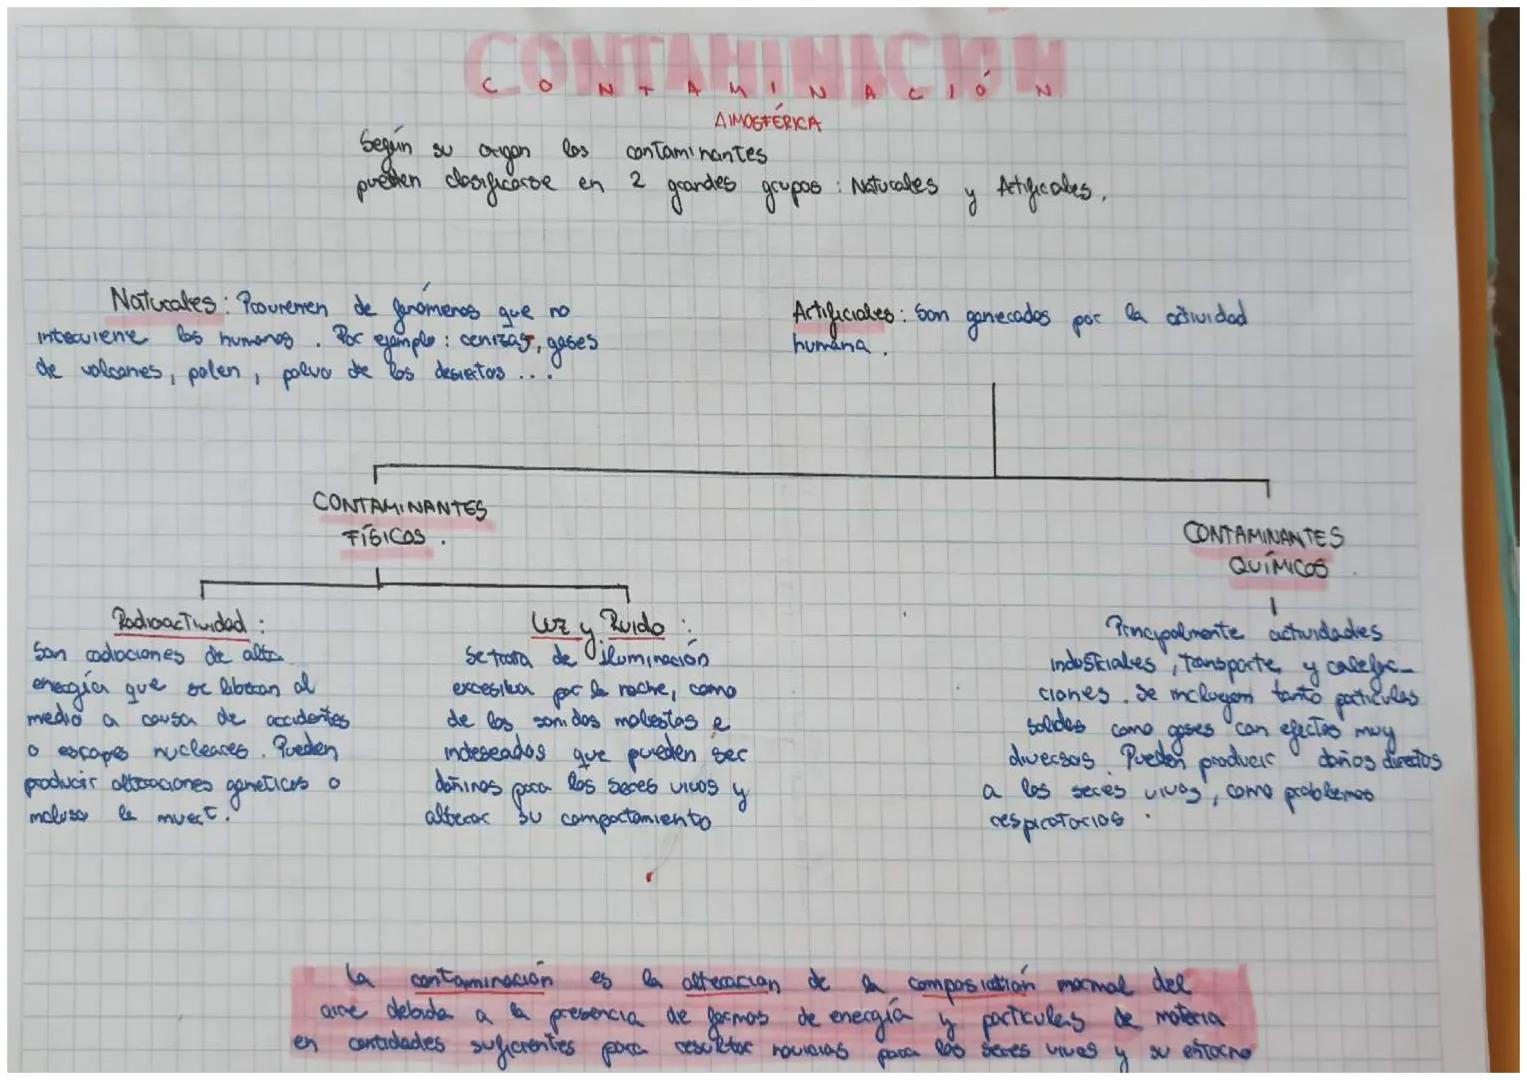 CONTAMINACIÓN
CONTAMINACIÓN
AIMOSFÉRICA
Según su origen los contaminantes
pueden clasificarse en 2 grandes grupos : Naturales y Artificales.
Naturales : Provienen de fenómenos que no
interviene los humanos . Por ejemplo : cenizas, gases
de volcanes, polen, polvo de los desiertos ...
Artificiales : Son generados por la actividad
humana .
CONTAMINANTES
FÍSICOS .
CONTAMINANTES
QUÍMICOS
Radioactividad :
Son radiaciones de alta
energía que se liberan al
medio a causa de accidentes
o escapes nucleares . Pueden
producir alteraciones geneticas o
incluso la muert.
Luz y Ruido :
Se trata de iluminación
excesiva por la noche, como
de los sonidos molestos e
indeseados que pueden ser
dañinos para los seres vivos y
alterar su comportamiento
Principalmente actividades
industriales, transporte y calefac-
ciones . Se incluyen tanto particulas
solidas como gases con efectos muy
diversos . Pueden producir daños directos
a los seres vivos, como problemas
respiratorios .
La contaminación es la alteracion de la composición normal del
aire debida a la presencia de formas de energía y particulas de materia
en cantidades suficientes para resultar nocivas para los seres vivos y su entorno